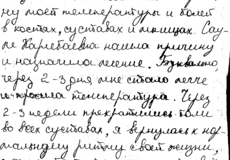 ну моей температуры и болей
в костях, суставах и мышцах. Сау-
ле Каребаевна нашла причину
и назначила лечение. Буквально
через 2-3 дня мне стало легче
и прошла температура. Через
2-3 недели прекратились боли
во всех суставах, я вернулась к нор-
мальному ритму своей жизни,